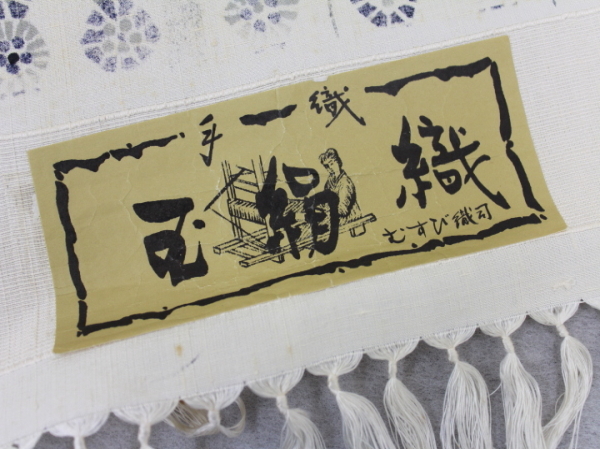 手一織
玉絹織
むすび織司